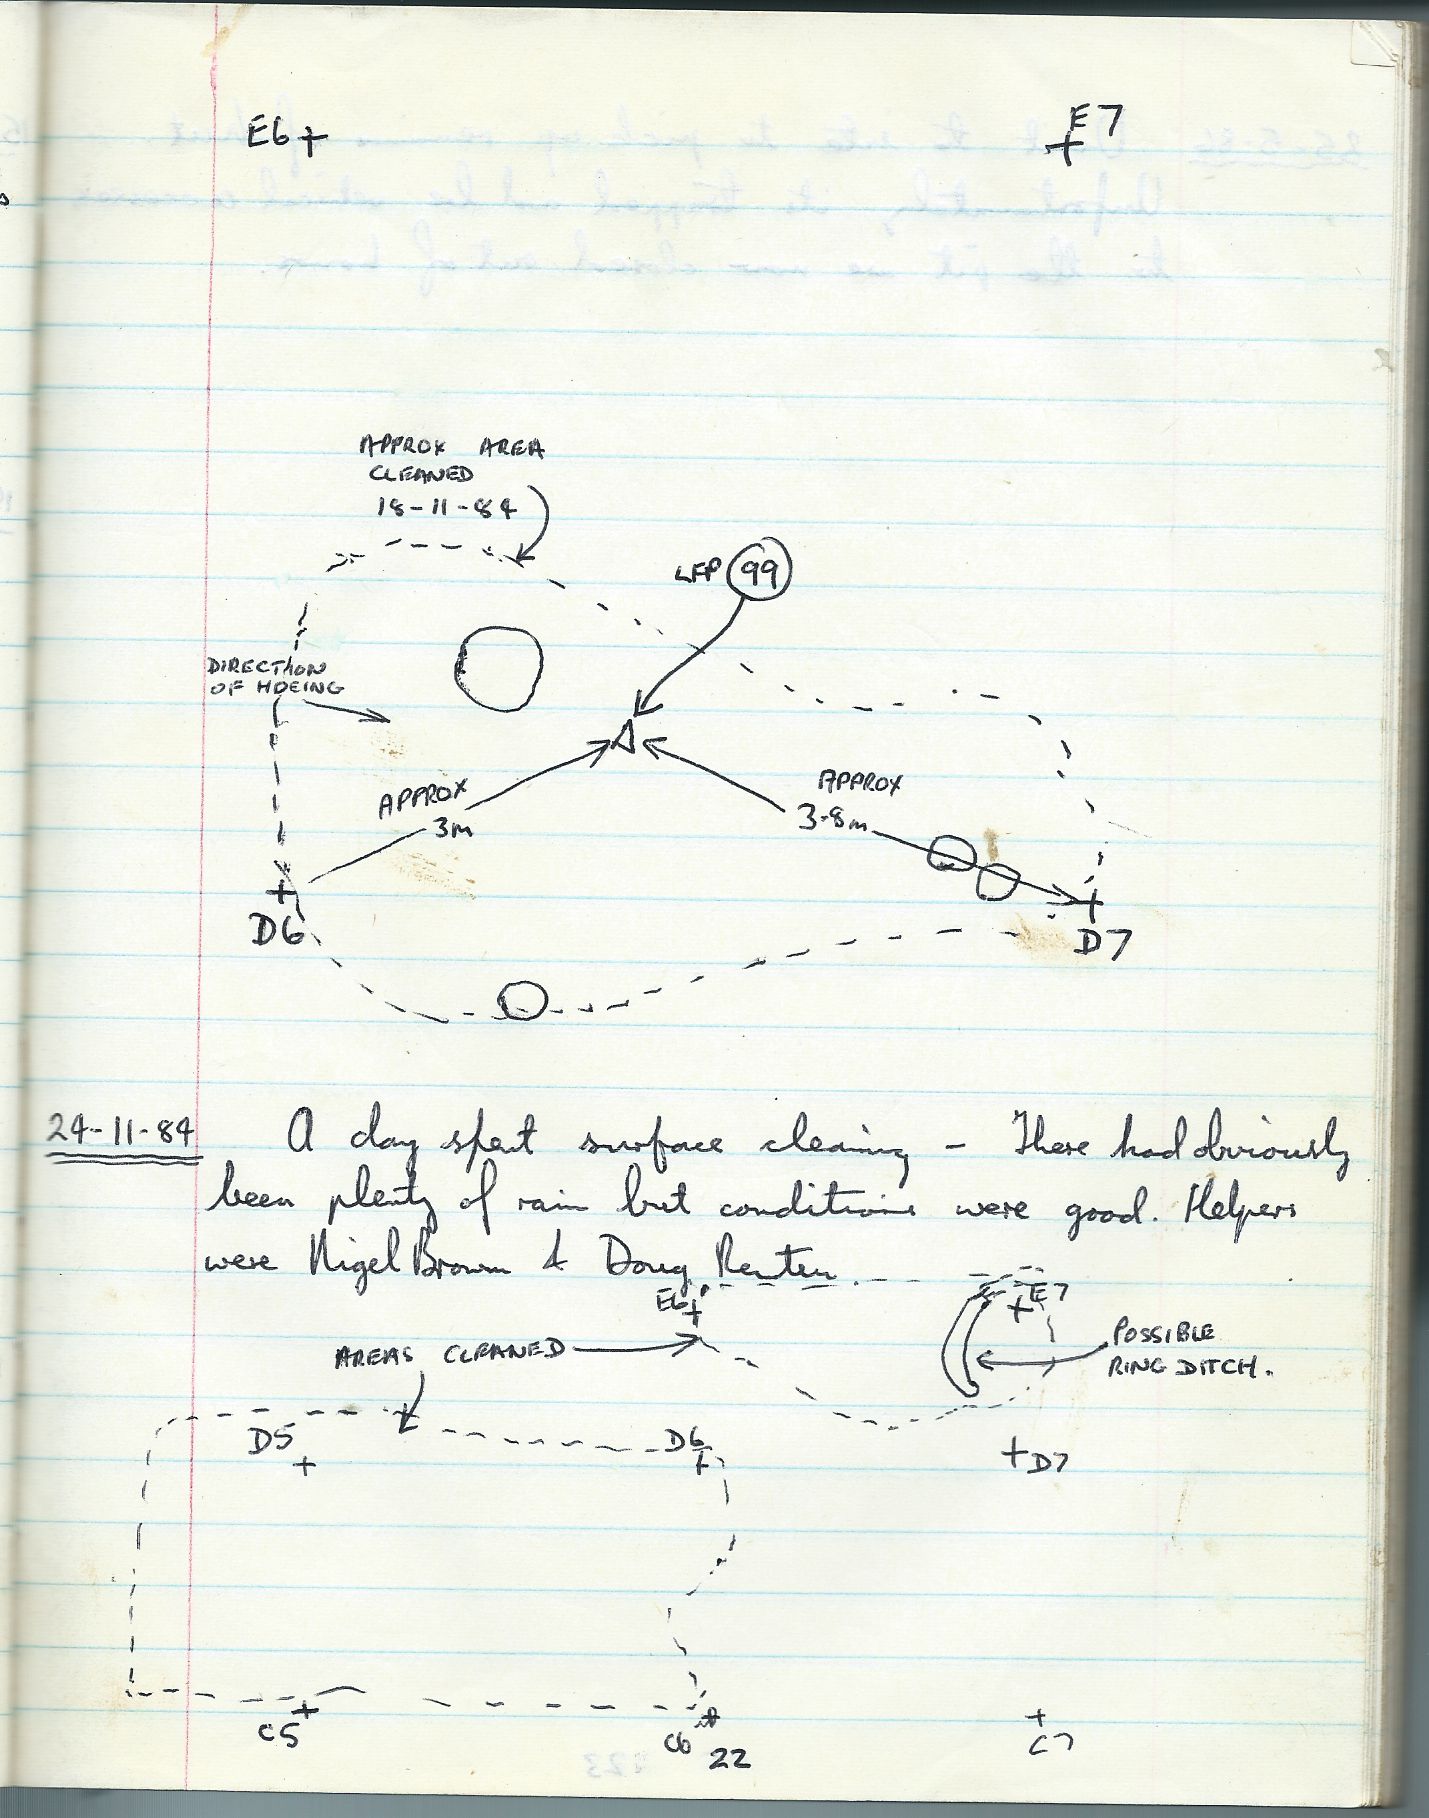 E6 E7
APPROX AREA
CLEANED
18-11-84
LFP 99
DIRECTION
OF HOEING
APPROX
3m
APPROX
3-8m
D6 D7
24-11-84 A day spent surface cleaning - There had obviously
been plenty of rain but conditions were good. Helpers
were Nigel Brown & Doug
E6 E7
AREAS CLEANED
POSSIBLE
RING DITCH.
D5 D6 D7
C5 C6 C7
22